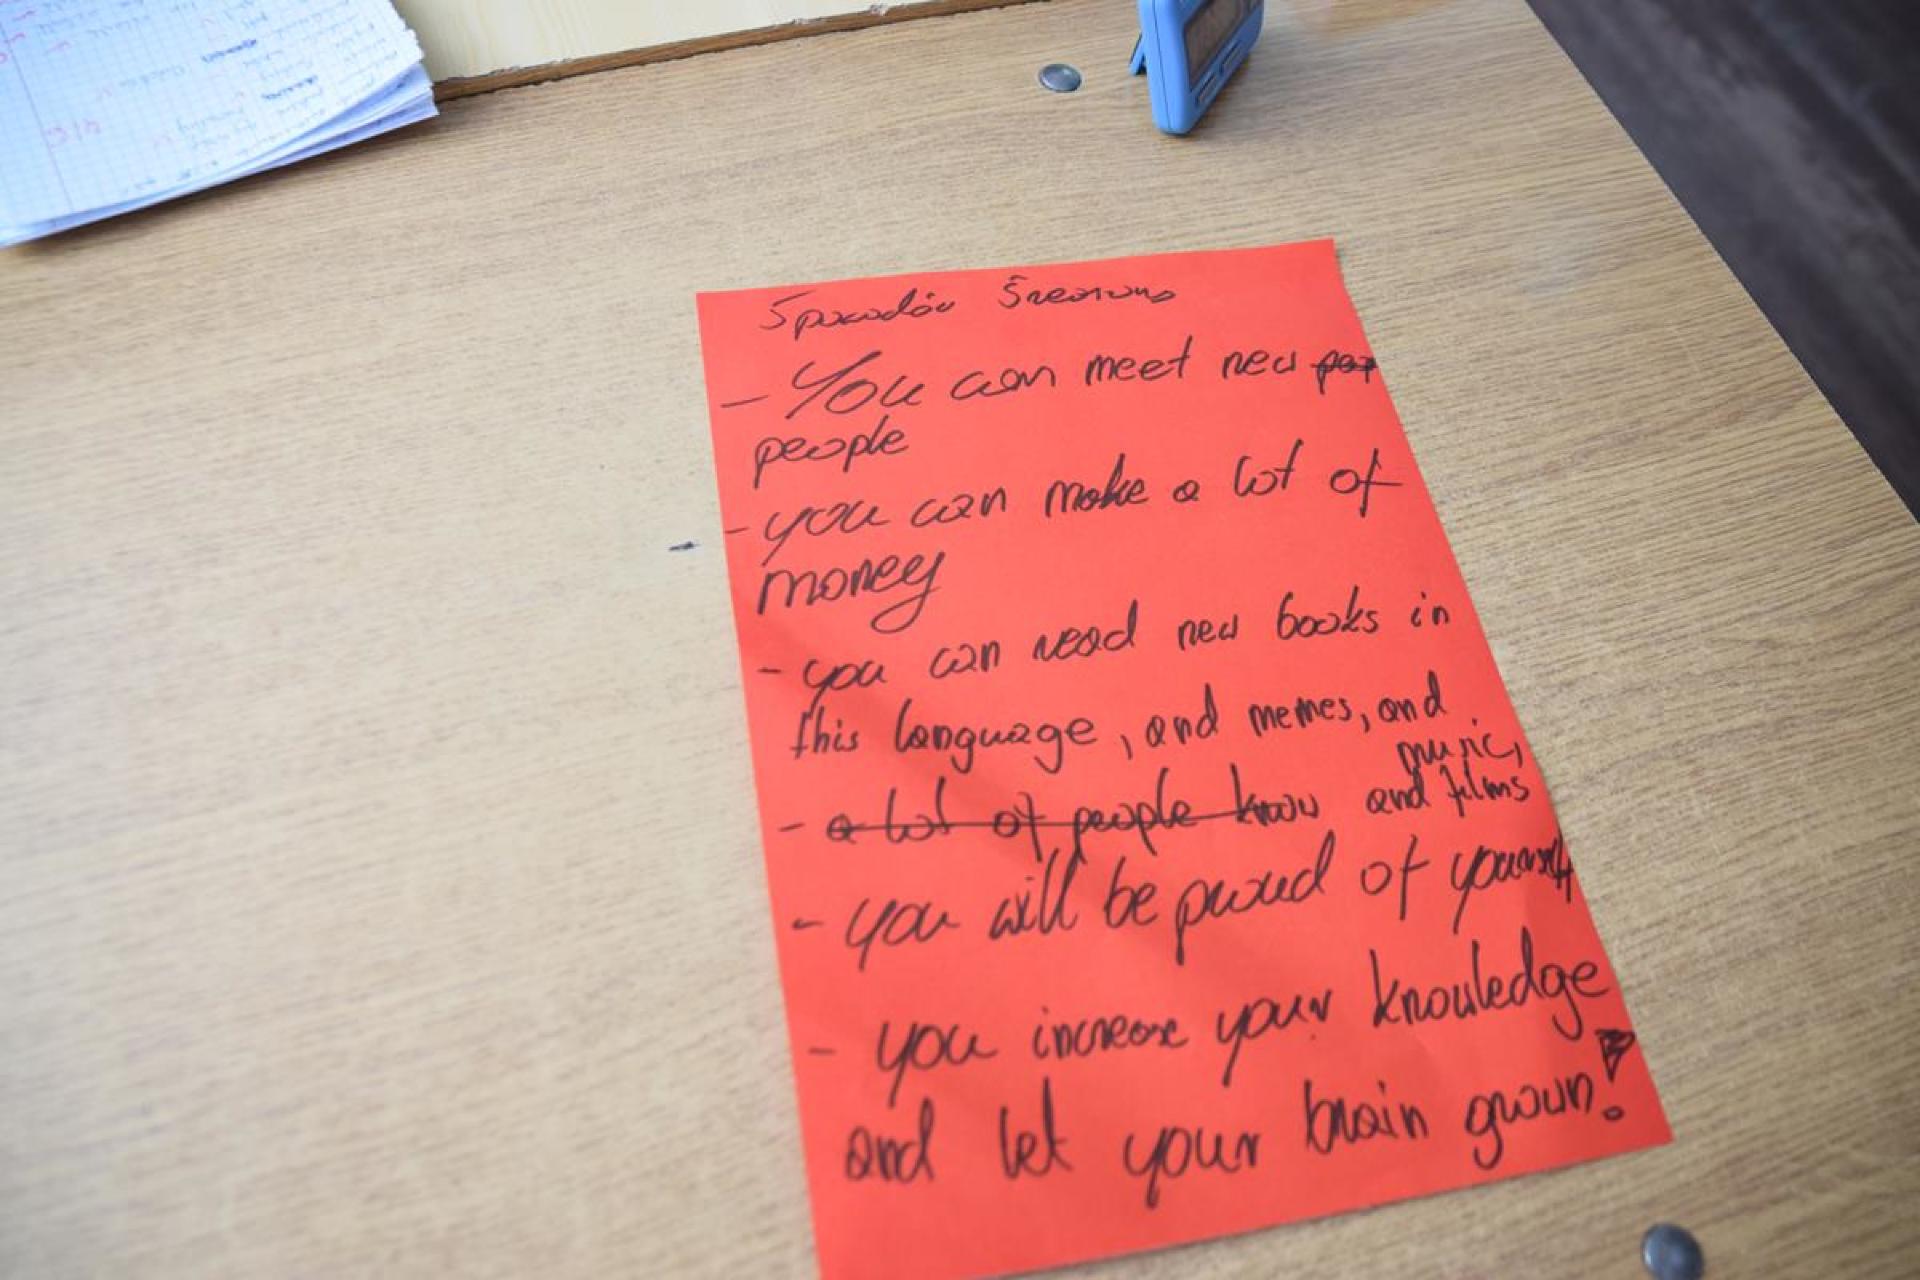 - You can meet new
people
- you can make a lot of
money
- you can read new books in
this language, and memes, and
music,
- a lot of people know and films
- you will be proud of yourself
- you increase your knowledge
and let your brain grown!